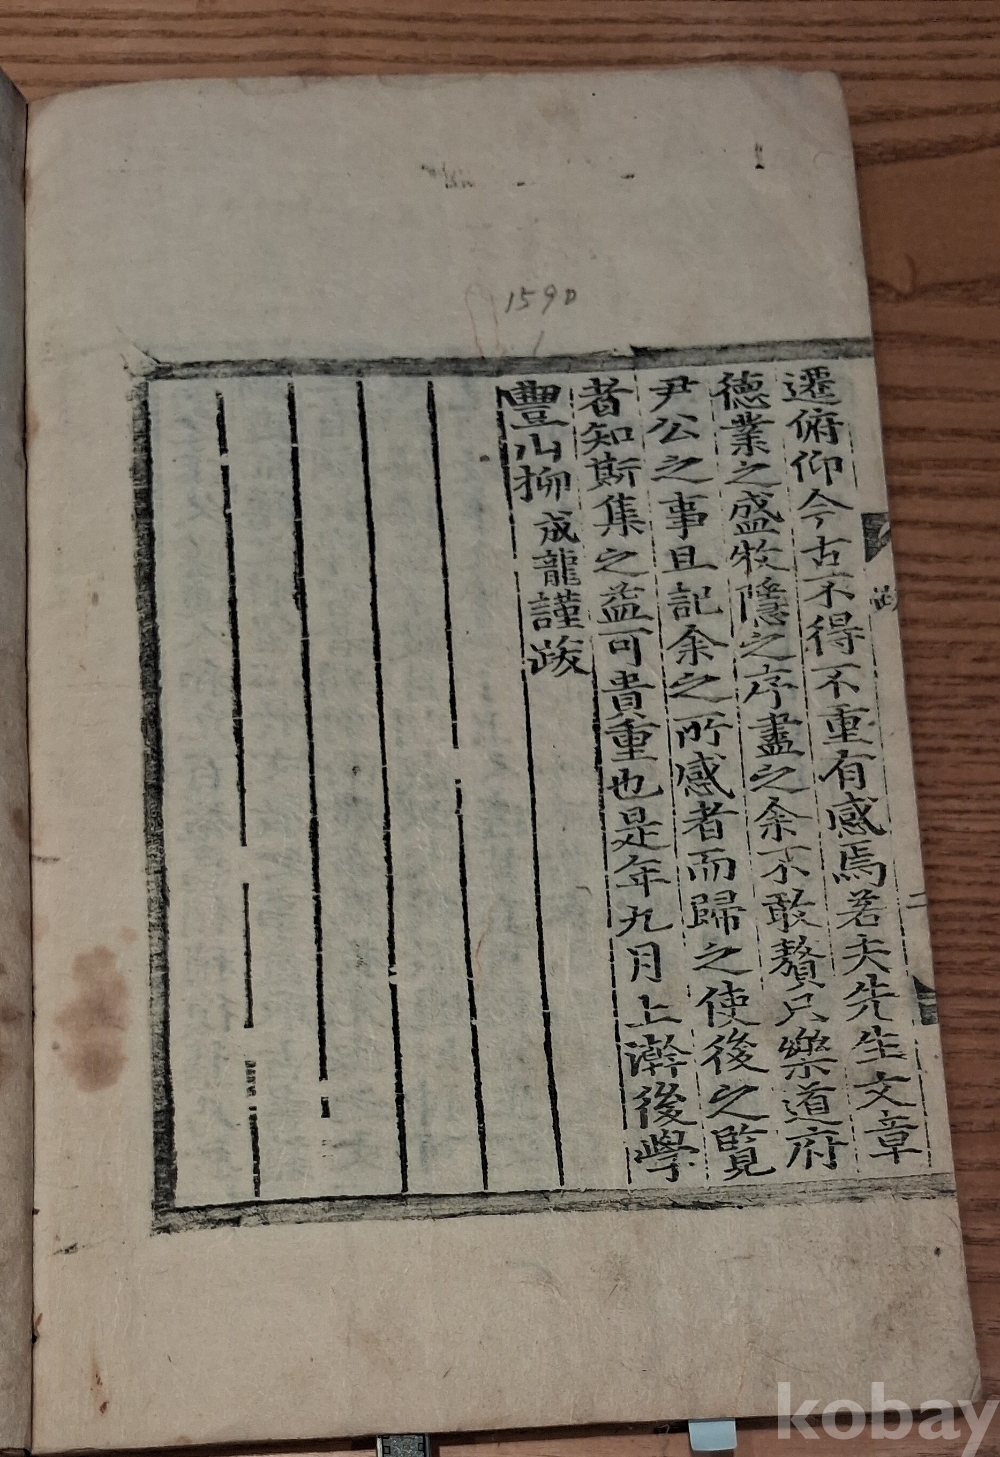 1590
遷俯仰今古不得不重有感焉若夫先生文章
德業之盛牧隱之序盡之余不敢贅只樂道府
尹公之事且記余之所感者而歸之使後之覽
者知斯集之益可貴重也是年九月上澣後學
豐山柳成龍謹跋
跋
二
kobay